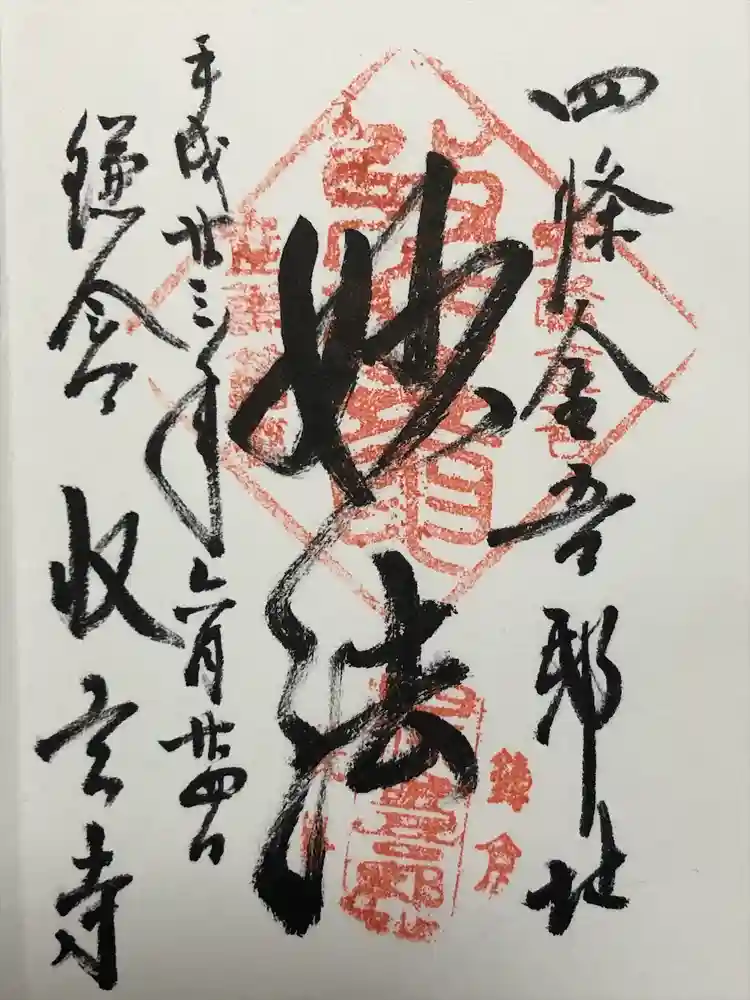 四條金吾邸址
妙法
平成廿三年六月廿四日
鎌倉 収玄寺
鎌倉